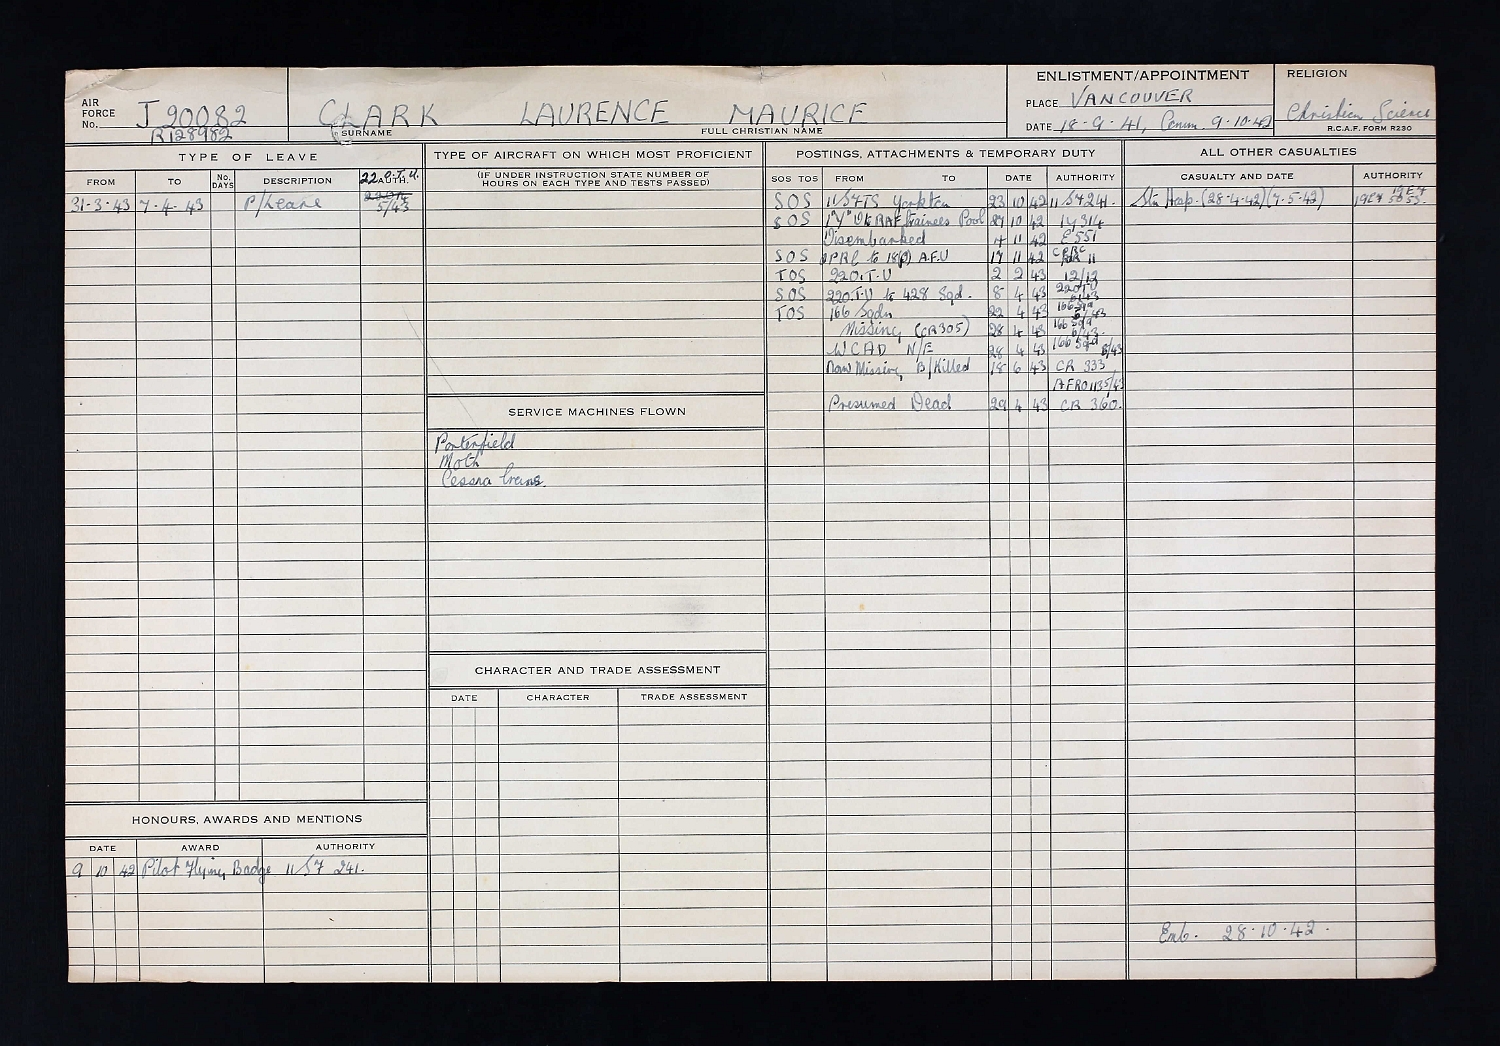 AIR FORCE No. J 20082
R128982
CLARK LAURENCE MAURICE
SURNAME FULL CHRISTIAN NAME
ENLISTMENT/APPOINTMENT
PLACE VANCOUVER
DATE 18-9-41, Comm. 9-10-42
RELIGION
Christian Science
R.C.A.F. FORM R230
TYPE OF LEAVE
FROM TO No. DAYS DESCRIPTION AUTH.
22.O.T.U.
31-3-43 7-4-43 P/Leave 5/43
HONOURS, AWARDS AND MENTIONS
DATE AWARD AUTHORITY
9 10 42 Pilot Flying Badge 11 S7 241.
TYPE OF AIRCRAFT ON WHICH MOST PROFICIENT
(IF UNDER INSTRUCTION STATE NUMBER OF
HOURS ON EACH TYPE AND TESTS PASSED)
SERVICE MACHINES FLOWN
Porterfield
Moth
Cessna Crane
CHARACTER AND TRADE ASSESSMENT
DATE CHARACTER TRADE ASSESSMENT
POSTINGS, ATTACHMENTS & TEMPORARY DUTY
SOS TOS FROM TO DATE AUTHORITY
SOS 11 SFTS Yorkton 23 10 42 11 S7 241.
SOS 1 "Y" Trainees Pool 27 10 42 1Y 314
Disembarked 4 11 42 E551
SOS 3PRC to 18(P) A.F.U 17 11 42
TOS 22O.T.U 2 2 43 12/12
SOS 22O.T.U to 428 Sqd. 8 4 43 22OTU 6/43
TOS 166 Sqdn 22 4 43 166 Sqd 6/43
Missing (CR305) 28 4 43 166 Sqd 6/43.
WCAD N/E 28 4 43 166 Sqd 6/43
Now Missing B/Killed 18 6 43 CR 333
AFRO1135/43
Presumed Dead 29 4 43 CR 360.
ALL OTHER CASUALTIES
CASUALTY AND DATE AUTHORITY
Stn Hosp. (28-4-42)(7-5-42)
Emb. 28-10-42.